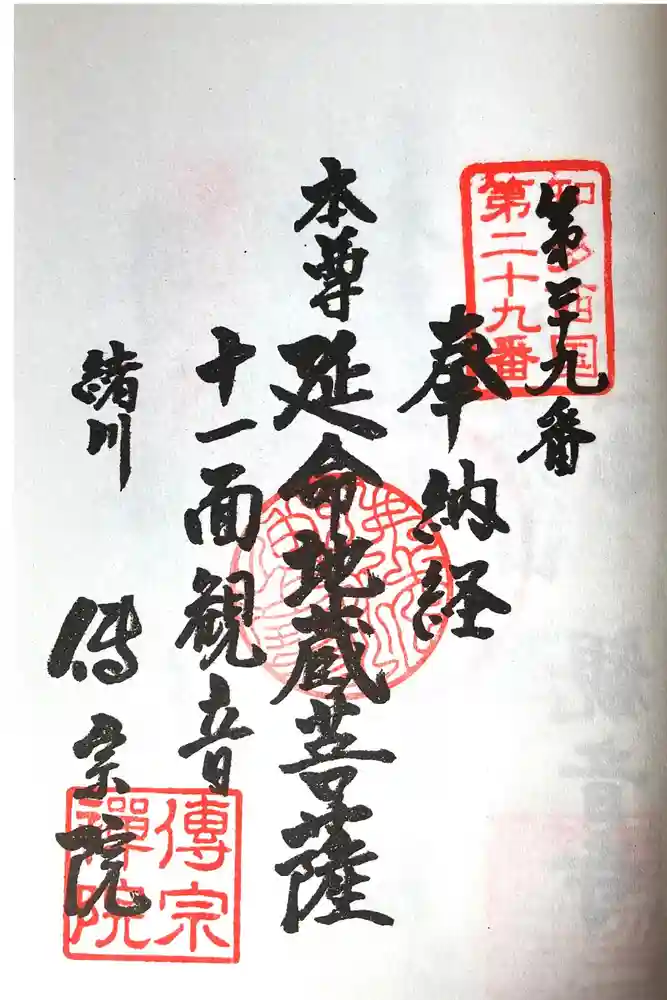 知多西国
第二十九番
第二十九番
奉納経
本尊延命地蔵菩薩
十一面観音
緒川
傳宗院
傳宗
禪院